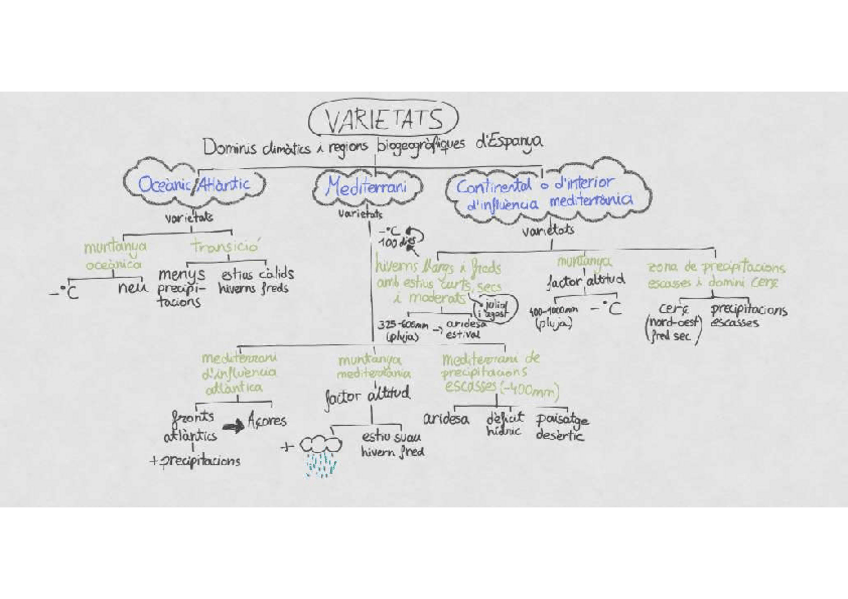 VARIETATS
Dominis climàtics i regions biogeogràfiques d'Espanya
Oceànic/Atlàntic
varietats
muntanya
oceànica
-°C
neu
transició
menys
precipi-
tacions
estius càlids
hiverns freds
Mediterrani
varietats
mediterrani
d'influència
atlàntica
fronts
atlàntics
+precipitacions
Açores
muntanya
mediterrània
factor altitud
+
estiu suau
hivern fred
mediterrani de
precipitacions
escasses (-400mm)
aridesa
dèficit
hídric
paisatge
desèrtic
Continental o d'interior
d'influència mediterrània
varietats
-°C
100 dies
hiverns llargs i freds
amb estius curts, secs
i moderats
juliol
i agost
325-600mm
(pluja)
aridesa
estival
muntanya
factor altitud
400-1000mm
(pluja)
-°C
zona de precipitacions
escasses i domini cerç
cerç
(nord-oest
fred sec)
precipitacions
escasses